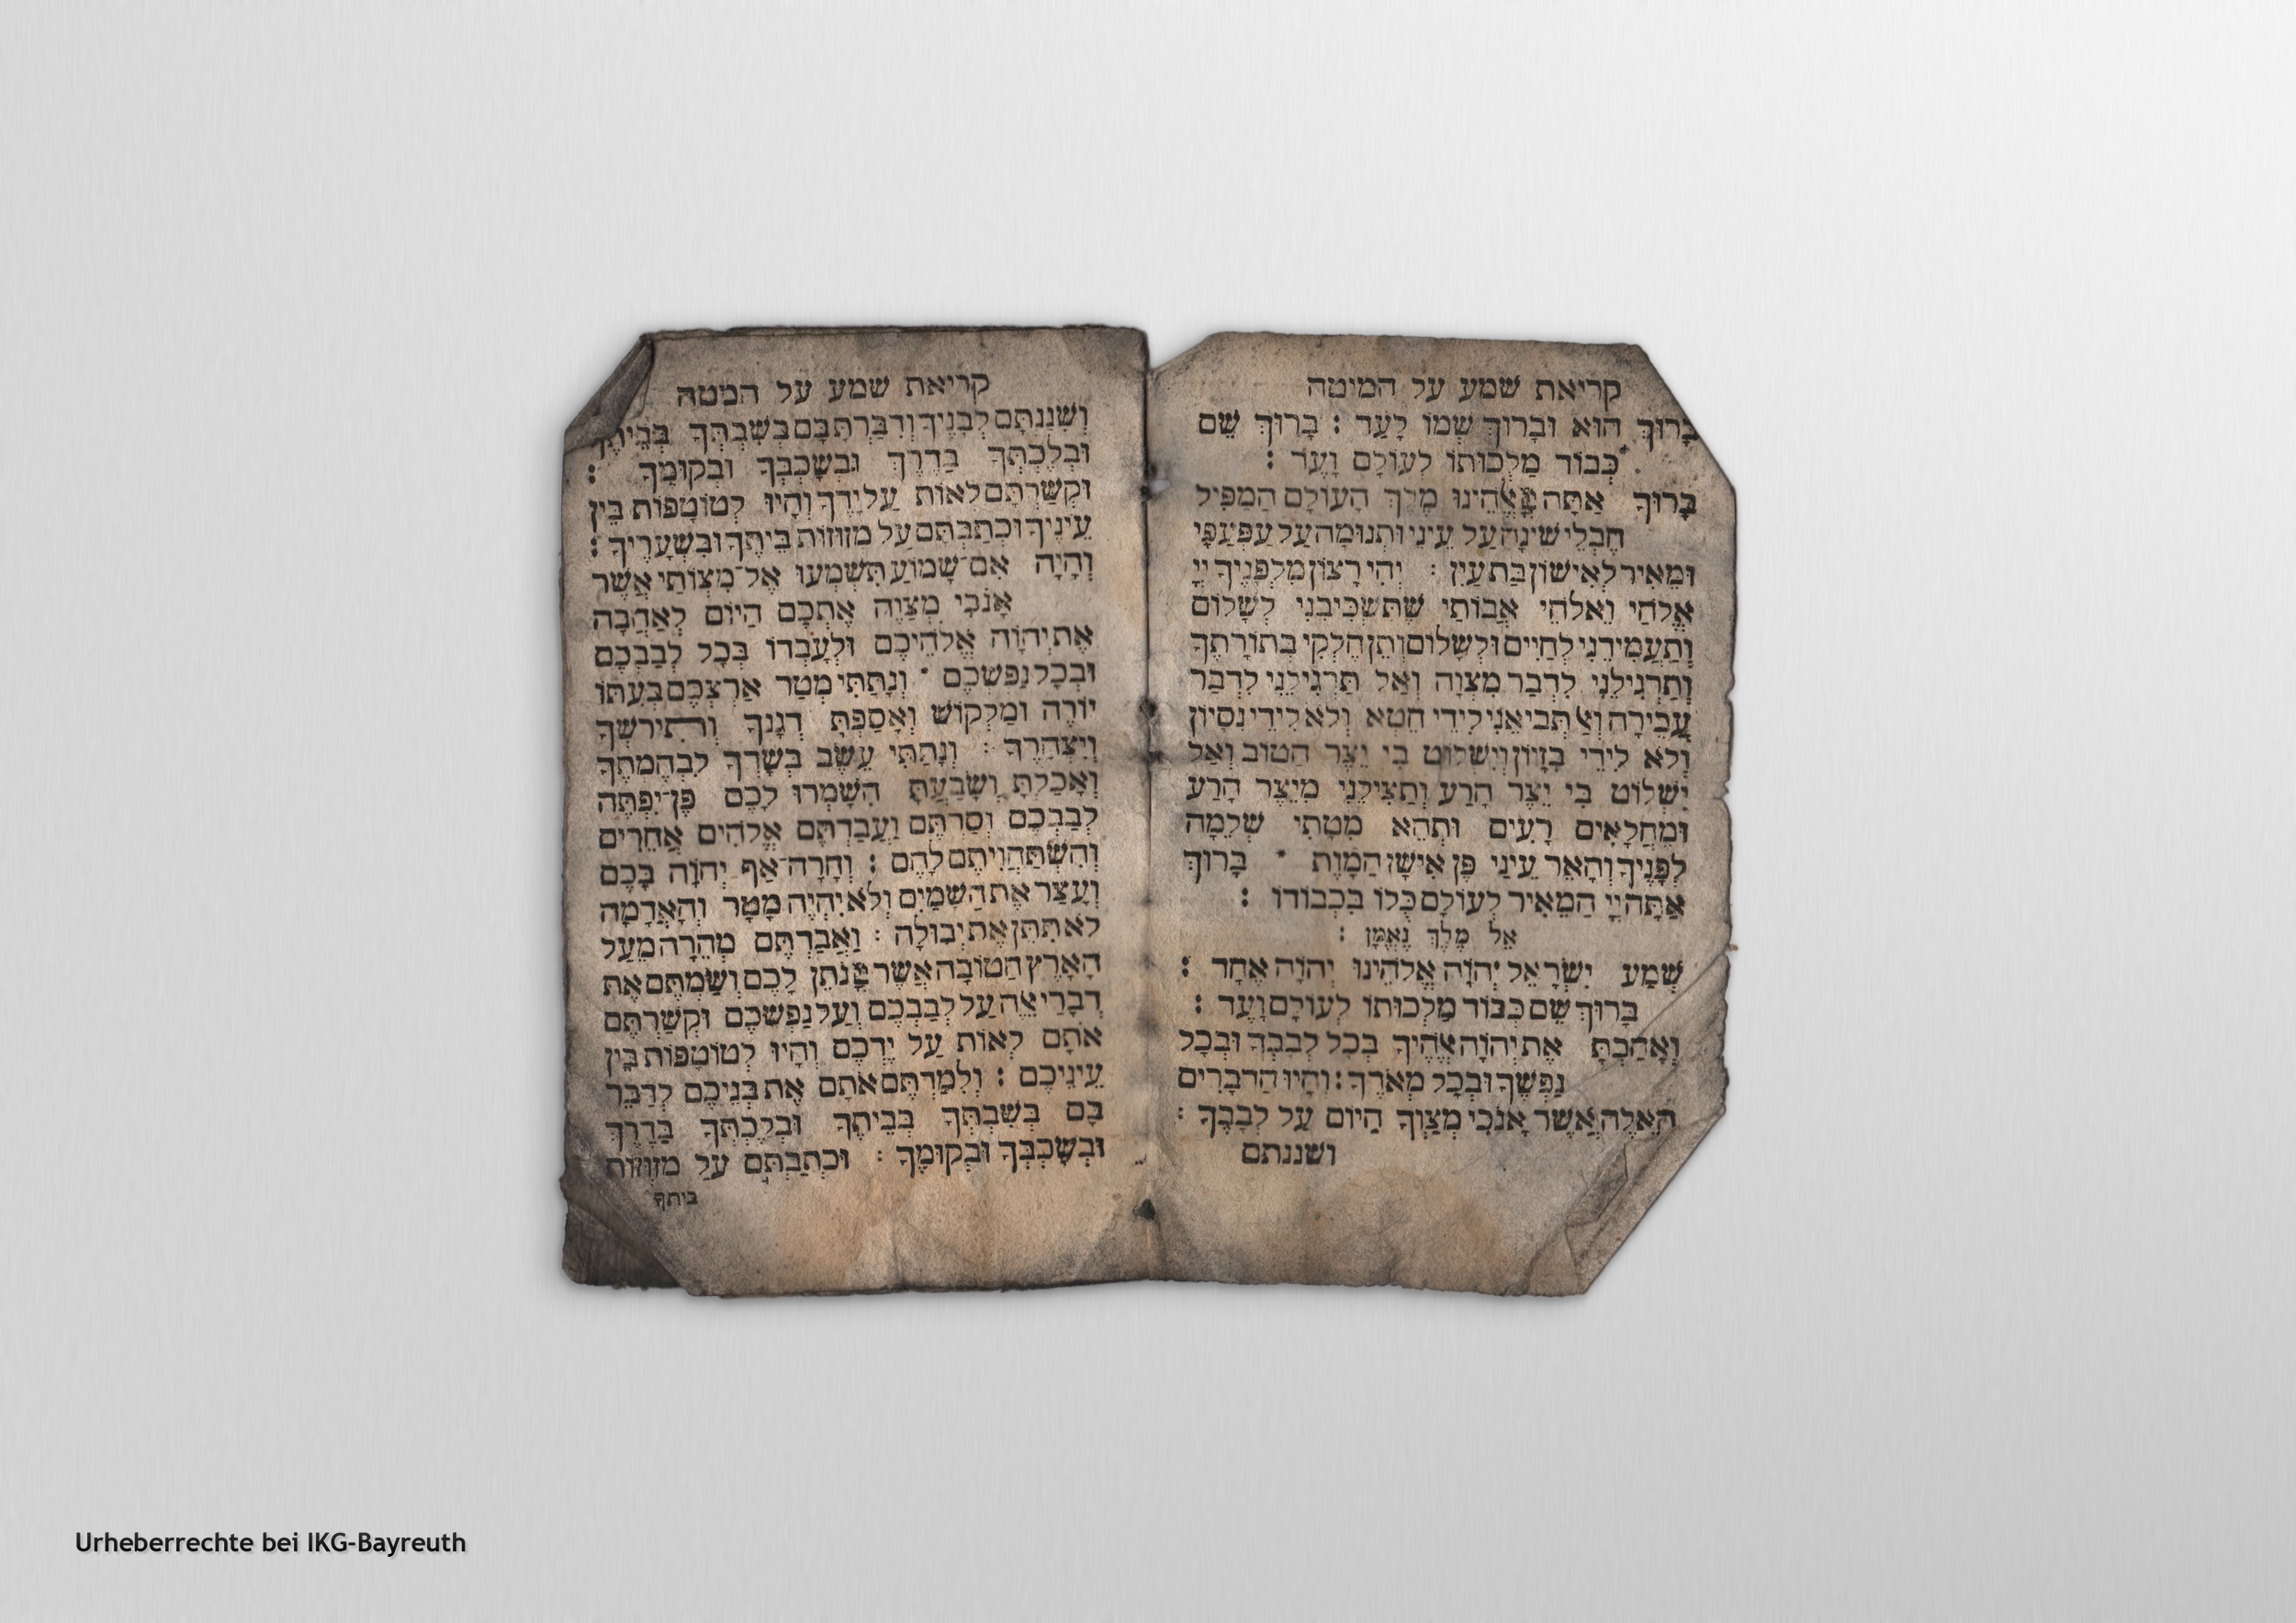 קריאת שמע על המיטה
בָּרוּךְ הוּא וּבָרוּךְ שְׁמוֹ לָעַד : בָּרוּךְ שֵׁם
כְּבוֹד מַלְכוּתוֹ לְעוֹלָם וָעֶד :
בָּרוּךְ אַתָּה יְיָ אֱלֹהֵינוּ מֶלֶךְ הָעוֹלָם הַמַּפִּיל
חֶבְלֵי שֵׁינָה עַל עֵינַי וּתְנוּמָה עַל עַפְעַפָּי
וּמֵאִיר לְאִישׁוֹן בַּת עַיִן : יְהִי רָצוֹן מִלְּפָנֶיךָ יְיָ
אֱלֹהַי וֵאלֹהֵי אֲבוֹתַי שֶׁתַּשְׁכִּיבֵנִי לְשָׁלוֹם
וְתַעֲמִידֵנִי לְחַיִּים וּלְשָׁלוֹם וְתֵן חֶלְקִי בְּתוֹרָתֶךָ
וְתַרְגִילֵנִי לִדְבַר מִצְוָה וְאַל תַּרְגִילֵנִי לִדְבַר
עֲבֵירָה וְאַל תְּבִיאֵנִי לִידֵי חֵטְא וְלֹא לִידֵי נִסָּיוֹן
וְלֹא לִידֵי בִזָּיוֹן וְיִשְׁלוֹט בִּי יֵצֶר הַטּוֹב וְאַל
יִשְׁלוֹט בִּי יֵצֶר הָרַע וְתַצִּילֵנִי מִיֵּצֶר הָרַע
וּמֵחֳלָאִים רָעִים וּתְהֵא מִטָּתִי שְׁלֵמָה
לְפָנֶיךָ וְהָאֵר עֵינַי פֶּן אִישַׁן הַמָּוֶת · בָּרוּךְ
אַתָּה יְיָ הַמֵּאִיר לְעוֹלָם כֻּלּוֹ בִּכְבוֹדוֹ :
אֵל מֶלֶךְ נֶאֱמָן :
שְׁמַע יִשְׂרָאֵל יְהוָֹה אֱלֹהֵינוּ יְהוָֹה אֶחָד :
בָּרוּךְ שֵׁם כְּבוֹד מַלְכוּתוֹ לְעוֹלָם וָעֶד :
וְאָהַבְתָּ אֶת יְהוָֹה אֱלֹהֶיךָ בְּכָל לְבָבְךָ וּבְכָל
נַפְשְׁךָ וּבְכָל מְאֹדֶךָ : וְהָיוּ הַדְּבָרִים
הָאֵלֶּה אֲשֶׁר אָנֹכִי מְצַוְּךָ הַיּוֹם עַל לְבָבֶךָ :
ושננתם
קריאת שמע על המטה
וְשִׁנַּנְתָּם לְבָנֶיךָ וְדִבַּרְתָּ בָּם בְּשִׁבְתְּךָ בְּבֵיתֶךָ
וּבְלֶכְתְּךָ בַדֶּרֶךְ וּבְשָׁכְבְּךָ וּבְקוּמֶךָ :
וּקְשַׁרְתָּם לְאוֹת עַל יָדֶךָ וְהָיוּ לְטוֹטָפוֹת בֵּין
עֵינֶיךָ וּכְתַבְתָּם עַל מְזוּזוֹת בֵּיתֶךָ וּבִשְׁעָרֶיךָ :
וְהָיָה אִם־שָׁמוֹעַ תִּשְׁמְעוּ אֶל־מִצְוֹתַי אֲשֶׁר
אָנֹכִי מְצַוֶּה אֶתְכֶם הַיּוֹם לְאַהֲבָה
אֶת יְהוָֹה אֱלֹהֵיכֶם וּלְעָבְדוֹ בְּכָל לְבַבְכֶם
וּבְכָל נַפְשְׁכֶם · וְנָתַתִּי מְטַר אַרְצְכֶם בְּעִתּוֹ
יוֹרֶה וּמַלְקוֹשׁ וְאָסַפְתָּ דְגָנֶךָ וְתִירֹשְׁךָ
וְיִצְהָרֶךָ : וְנָתַתִּי עֵשֶׂב בְּשָׂדְךָ לִבְהֶמְתֶּךָ
וְאָכַלְתָּ וְשָׂבָעְתָּ הִשָּׁמְרוּ לָכֶם פֶּן־יִפְתֶּה
לְבַבְכֶם וְסַרְתֶּם וַעֲבַדְתֶּם אֱלֹהִים אֲחֵרִים
וְהִשְׁתַּחֲוִיתֶם לָהֶם : וְחָרָה־אַף יְהוָֹה בָּכֶם
וְעָצַר אֶת הַשָּׁמַיִם וְלֹא יִהְיֶה מָטָר וְהָאֲדָמָה
לֹא תִתֵּן אֶת יְבוּלָהּ : וַאֲבַדְתֶּם מְהֵרָה מֵעַל
הָאָרֶץ הַטּוֹבָה אֲשֶׁר יְיָ נֹתֵן לָכֶם וְשַׂמְתֶּם אֶת
דְּבָרַי אֵלֶּה עַל לְבַבְכֶם וְעַל נַפְשְׁכֶם וּקְשַׁרְתֶּם
אֹתָם לְאוֹת עַל יֶדְכֶם וְהָיוּ לְטוֹטָפוֹת בֵּין
עֵינֵיכֶם : וְלִמַּדְתֶּם אֹתָם אֶת בְּנֵיכֶם לְדַבֵּר
בָּם בְּשִׁבְתְּךָ בְּבֵיתֶךָ וּבְלֶכְתְּךָ בַדֶּרֶךְ
וּבְשָׁכְבְּךָ וּבְקוּמֶךָ : וּכְתַבְתָּם עַל מְזוּזוֹת
ביתך
Urheberrechte bei IKG-Bayreuth